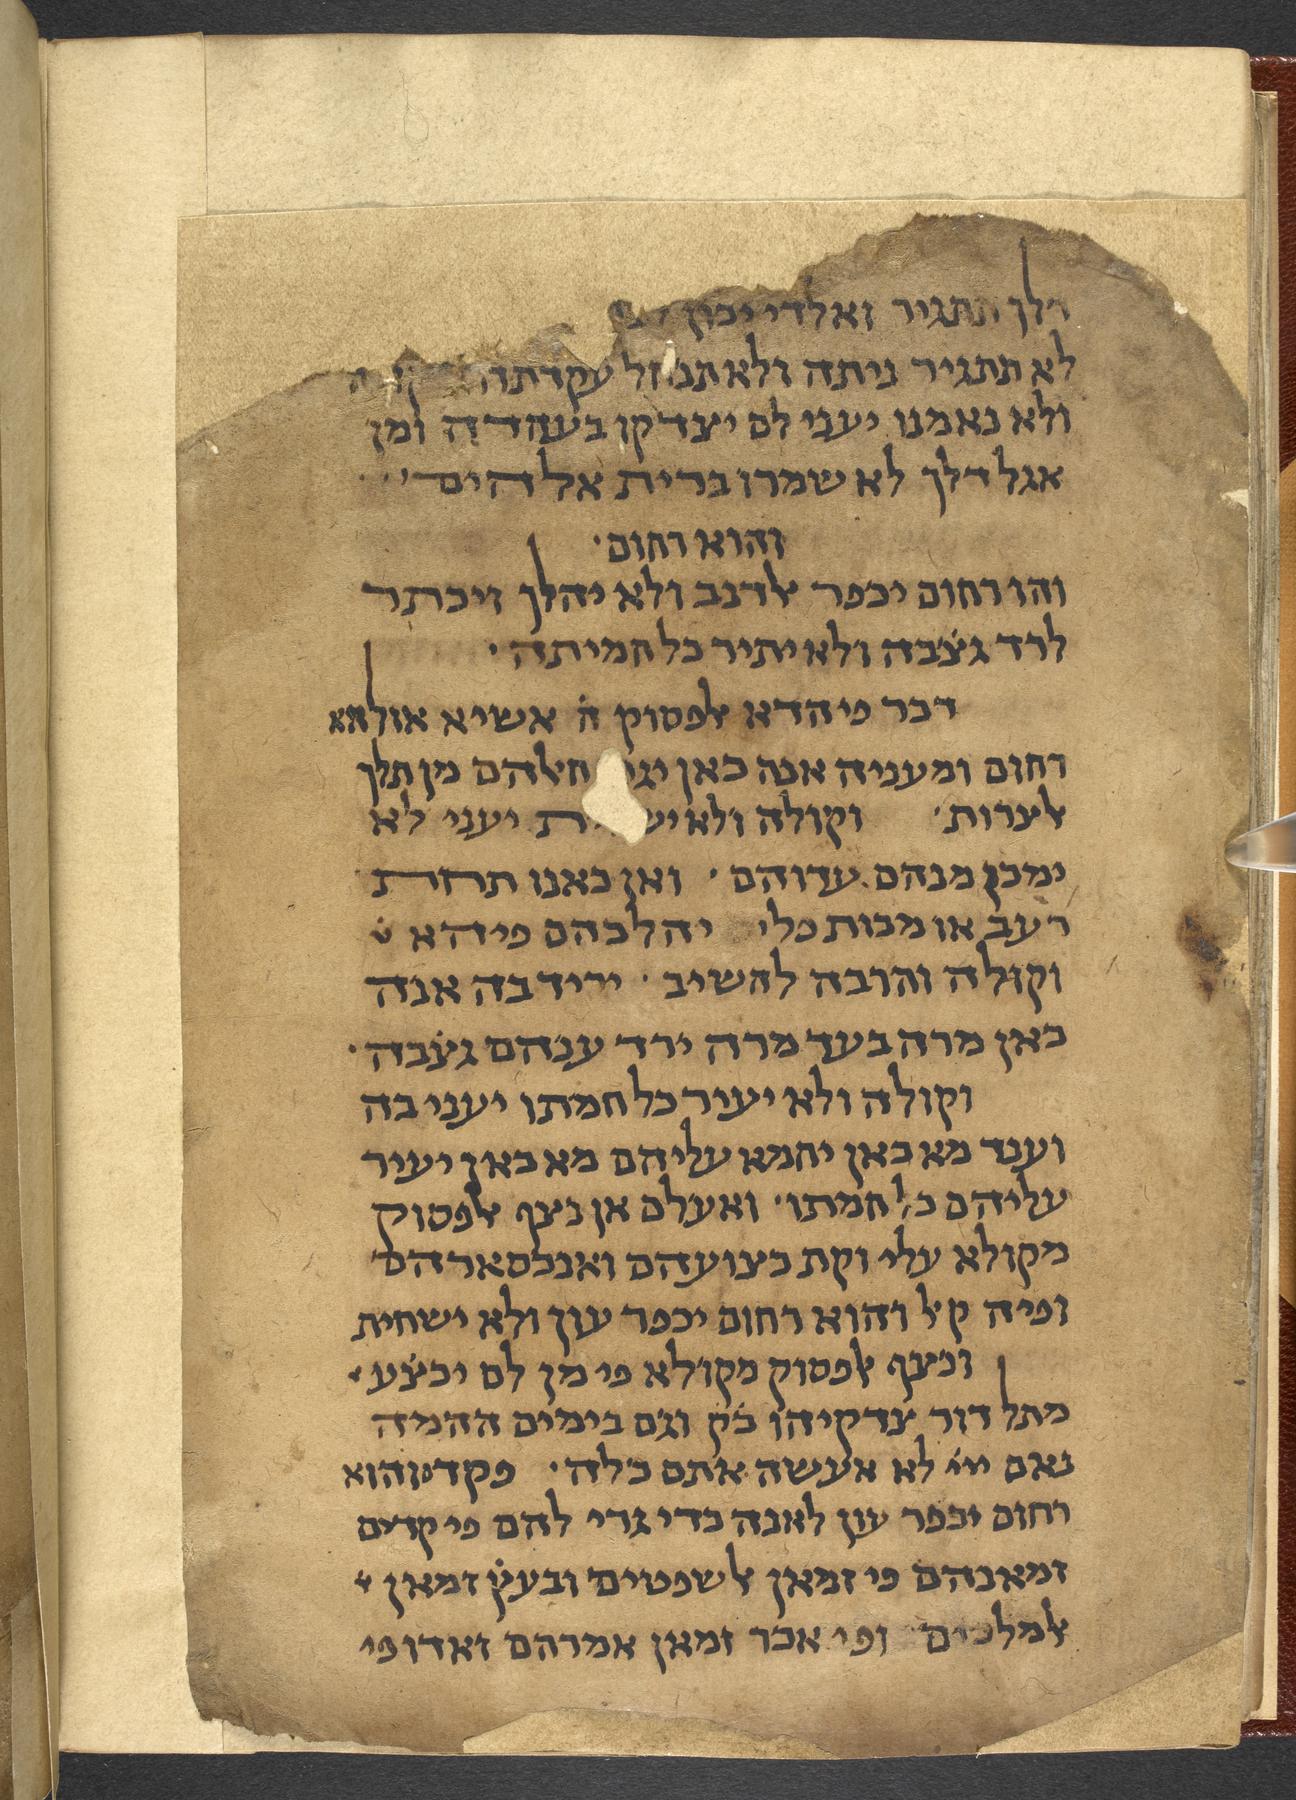 דלך תתגיר ואלדי יכון
לא תתגיר ניתה ולא תנחל עקדתה
ולא נאמנו יעני לם יצדקו בעהדה ומן
אגל דלך לא שמרו ברית אלהים
והוא רחום
והו רחום יכפר אלדנב ולא יהלך ויכתר
לרד גצ̇בה ולא יתיר כל חמיתה
דכר פי הדא אלפסוק ה̇ אשיא אולהא
רחום ומעניה אנה כאן ירחמהם מן תלך
אלצרות וקולה ולא ישחית יעני לא
ימכן מנהם עדוהם ואן כאנו תחת
רעב או מכות כלי יהלכהם פיהא
וקולה והרבה להשיב יריד בה אנה
כאן מרה בעד מרה ירד ענהם גצ̇בה
וקולה ולא יעיר כל חמתו יעני בה
וענד מא כאן יחמא עליהם מא כאן יעיר
עליהם כל חמתו ואעלם אן נצף אלפסוק
מקולא עלי וקת כצועהם ואנכסארהם
ופיה קאל והוא רחום יכפר עון ולא ישחית
ונצף אלפסוק מקולא פי מן לם יכצ̇ע
מתל דור צדקיהו כ̇ק וגם בימים ההמה
נאם ייי לא אעשה אתם כלה פקד והוא
רחום יכפר עון לאנה כדי גרי להם פי קדים
זמאנהם פי זמאן אלשפטים ובעץ̇ זמאן
אלמלכים ופי אכר זמאן אמרהם זאדו פי